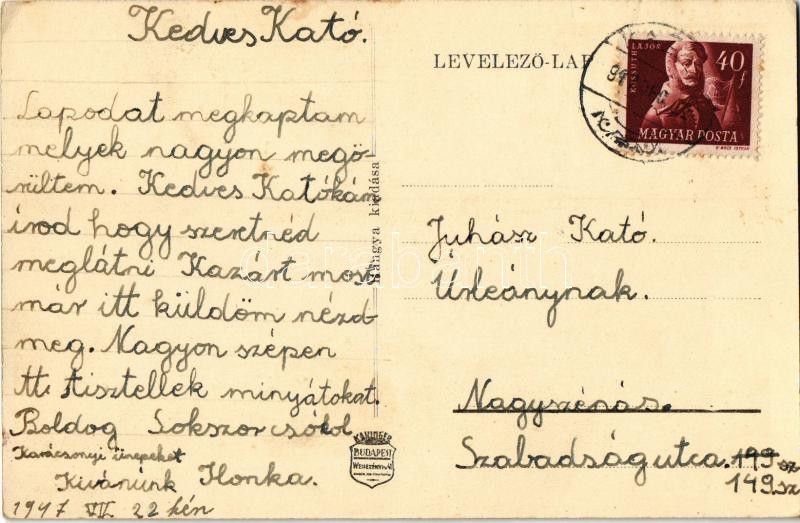 Kedves Kató.
Lapodat megkaptam
melyek nagyon megö-
rültem. Kedves Katókám
irod hogy szeretnéd
meglátni Kazárt most
már itt küldöm nézd
meg. Nagyon szépen
tt. tisztellek minyátokat.
Boldog Sokszor csókol
Karácsonyi ünnepeket
Kivánunk Ilonka.
1947 22 kén
Hangya kiadása
KLINGER
BUDAPEST
LEVELEZŐ-LAP
KOSSUTH LAJOS
40 f
MAGYAR POSTA
Juhász Kató.
Úrleánynak.
Nagyszénás.
Szabadság utca. 199 sz
149. sz
darabanth